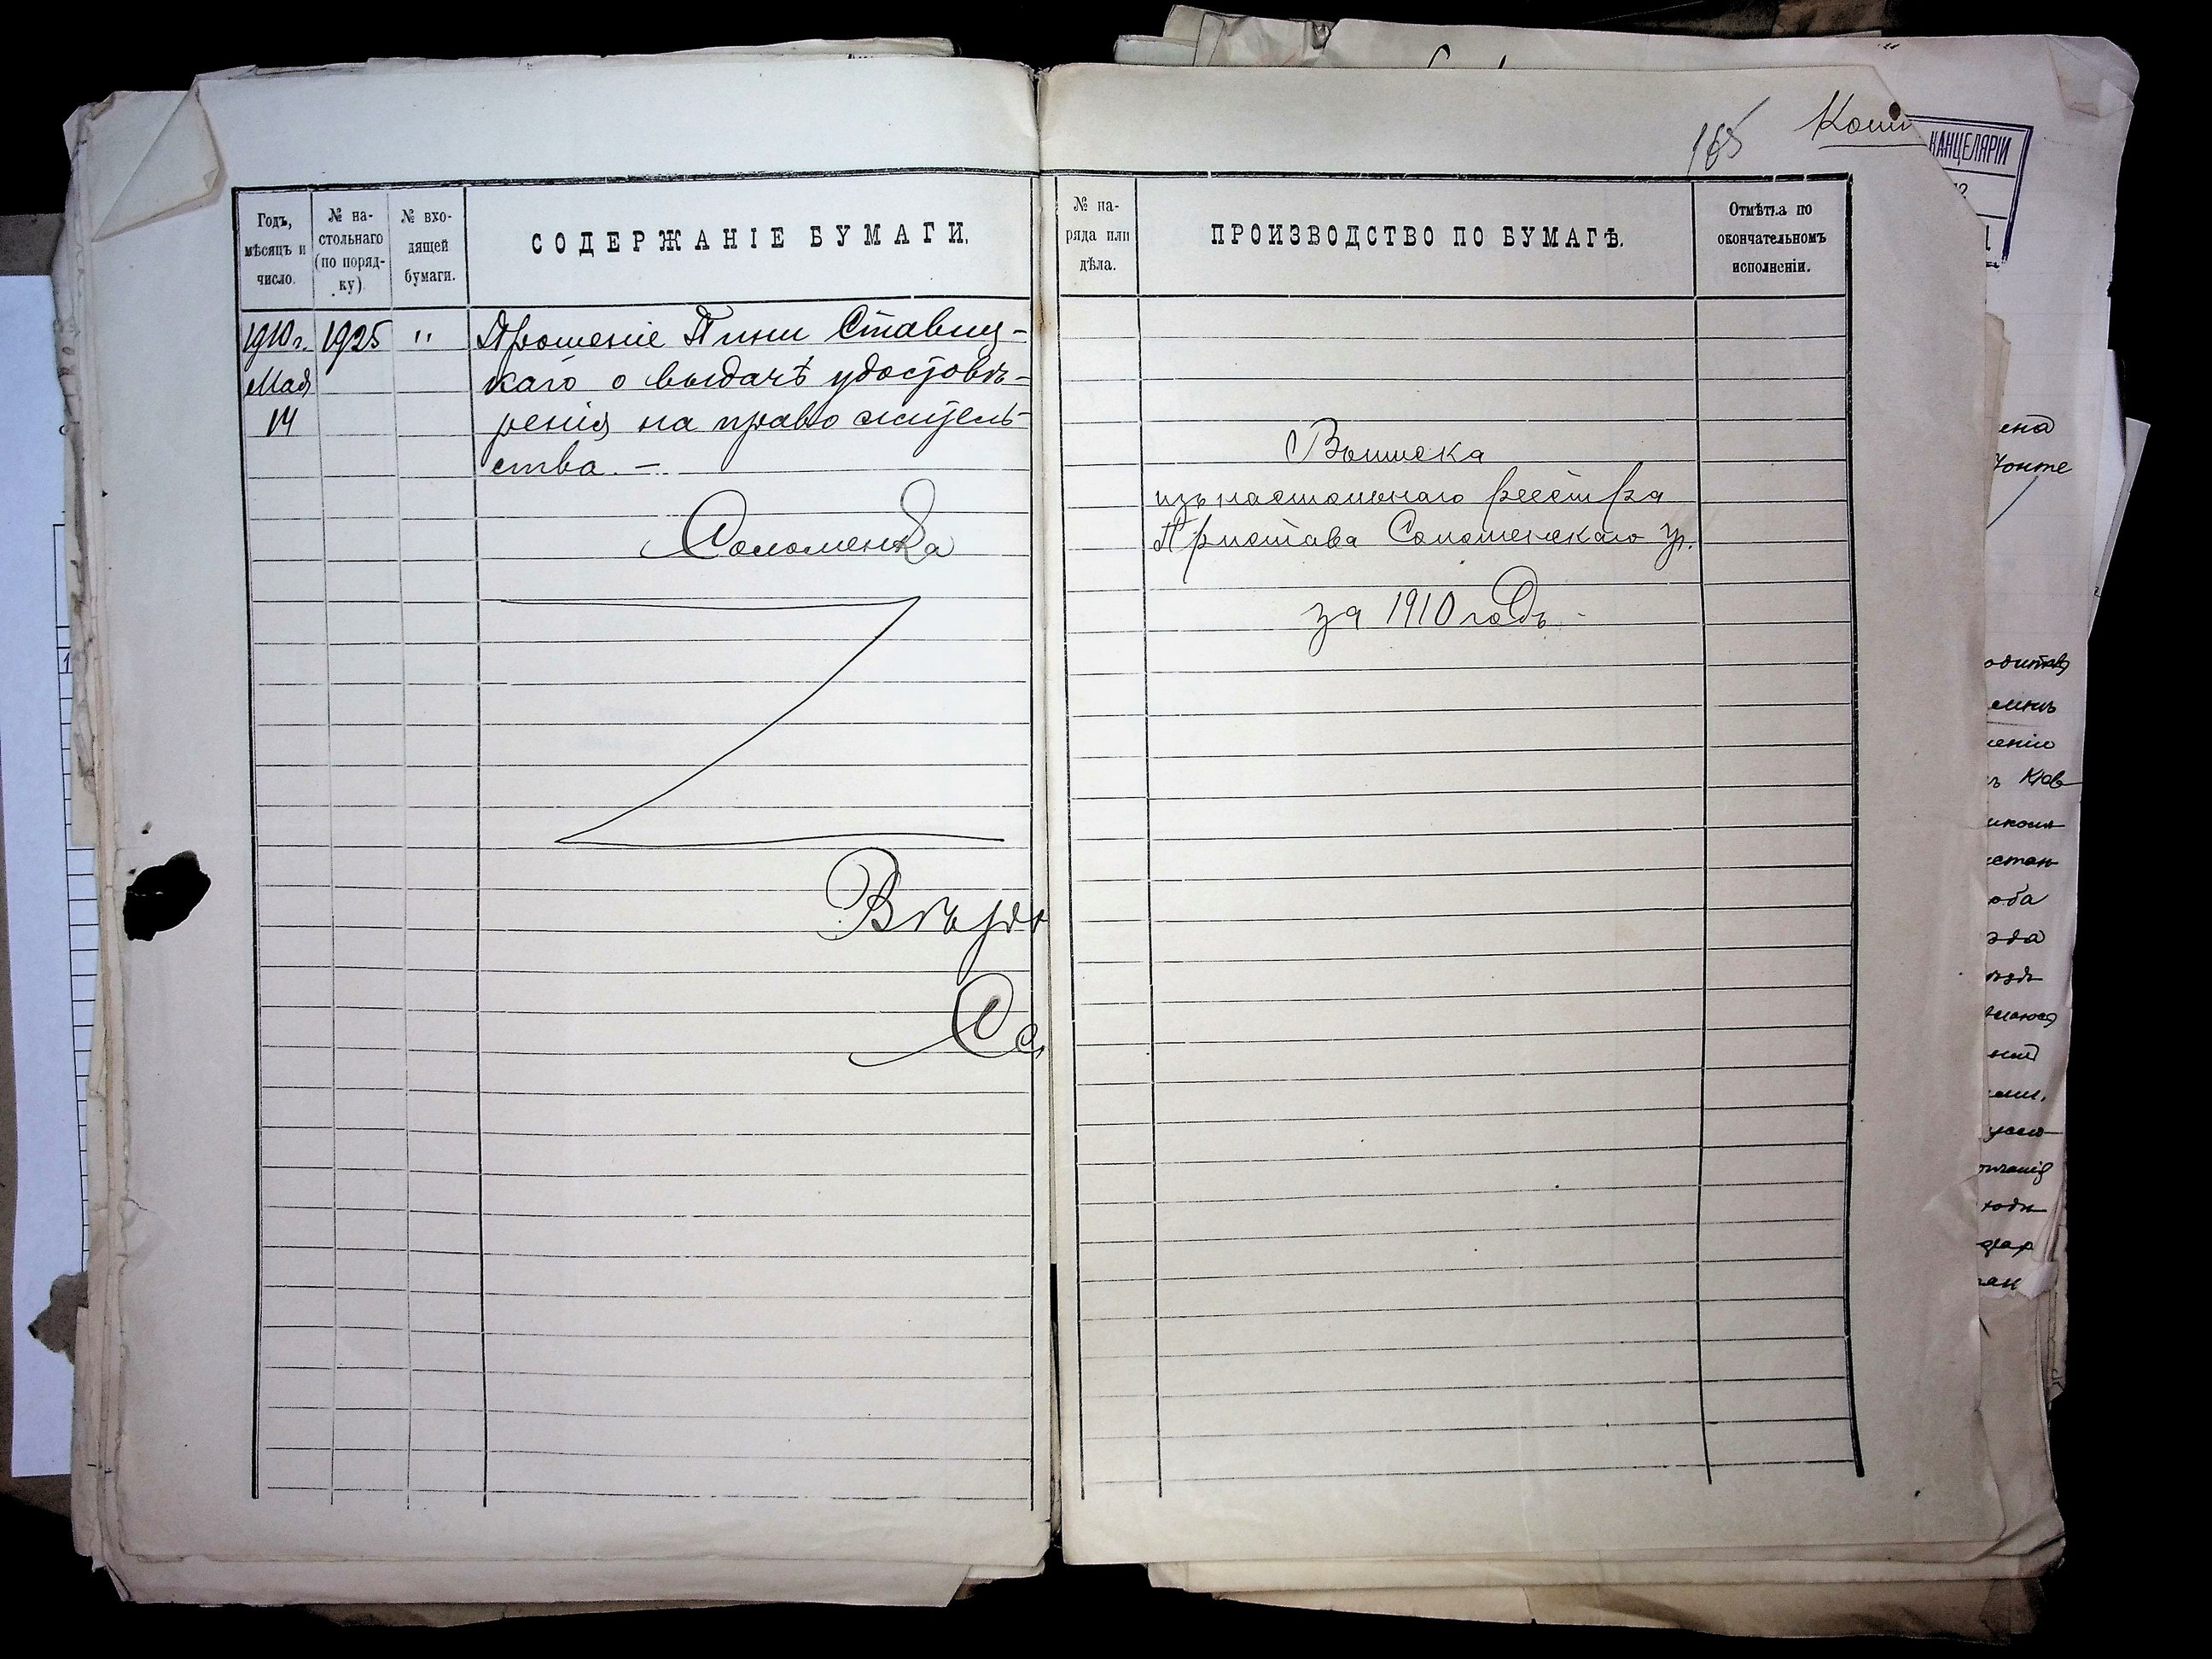 165
Копи
КАНЦЕЛЯРІИ
Годъ,
мѣсяцъ и
число.
№ на-
стольнаго
(по поряд-
ку)
№ вхо-
дящей
бумаги.
СОДЕРЖАНІЕ БУМАГИ.
1910 г.
Мая
14
1925
"
Прошеніе Пини Ставиц-
каго о выдачѣ удостовѣ-
ренія на право житель-
ства. —
Соломенка
Вѣрн
Се
№ на-
ряда или
дѣла.
ПРОИЗВОДСТВО ПО БУМАГѢ.
Отмѣтка по
окончательномъ
исполненіи.
Выписка
изъ настольнаго реестра
Пристава Соломенскаго уч.
за 1910 годъ.
ена
одит
еніи
стан
оба
зда